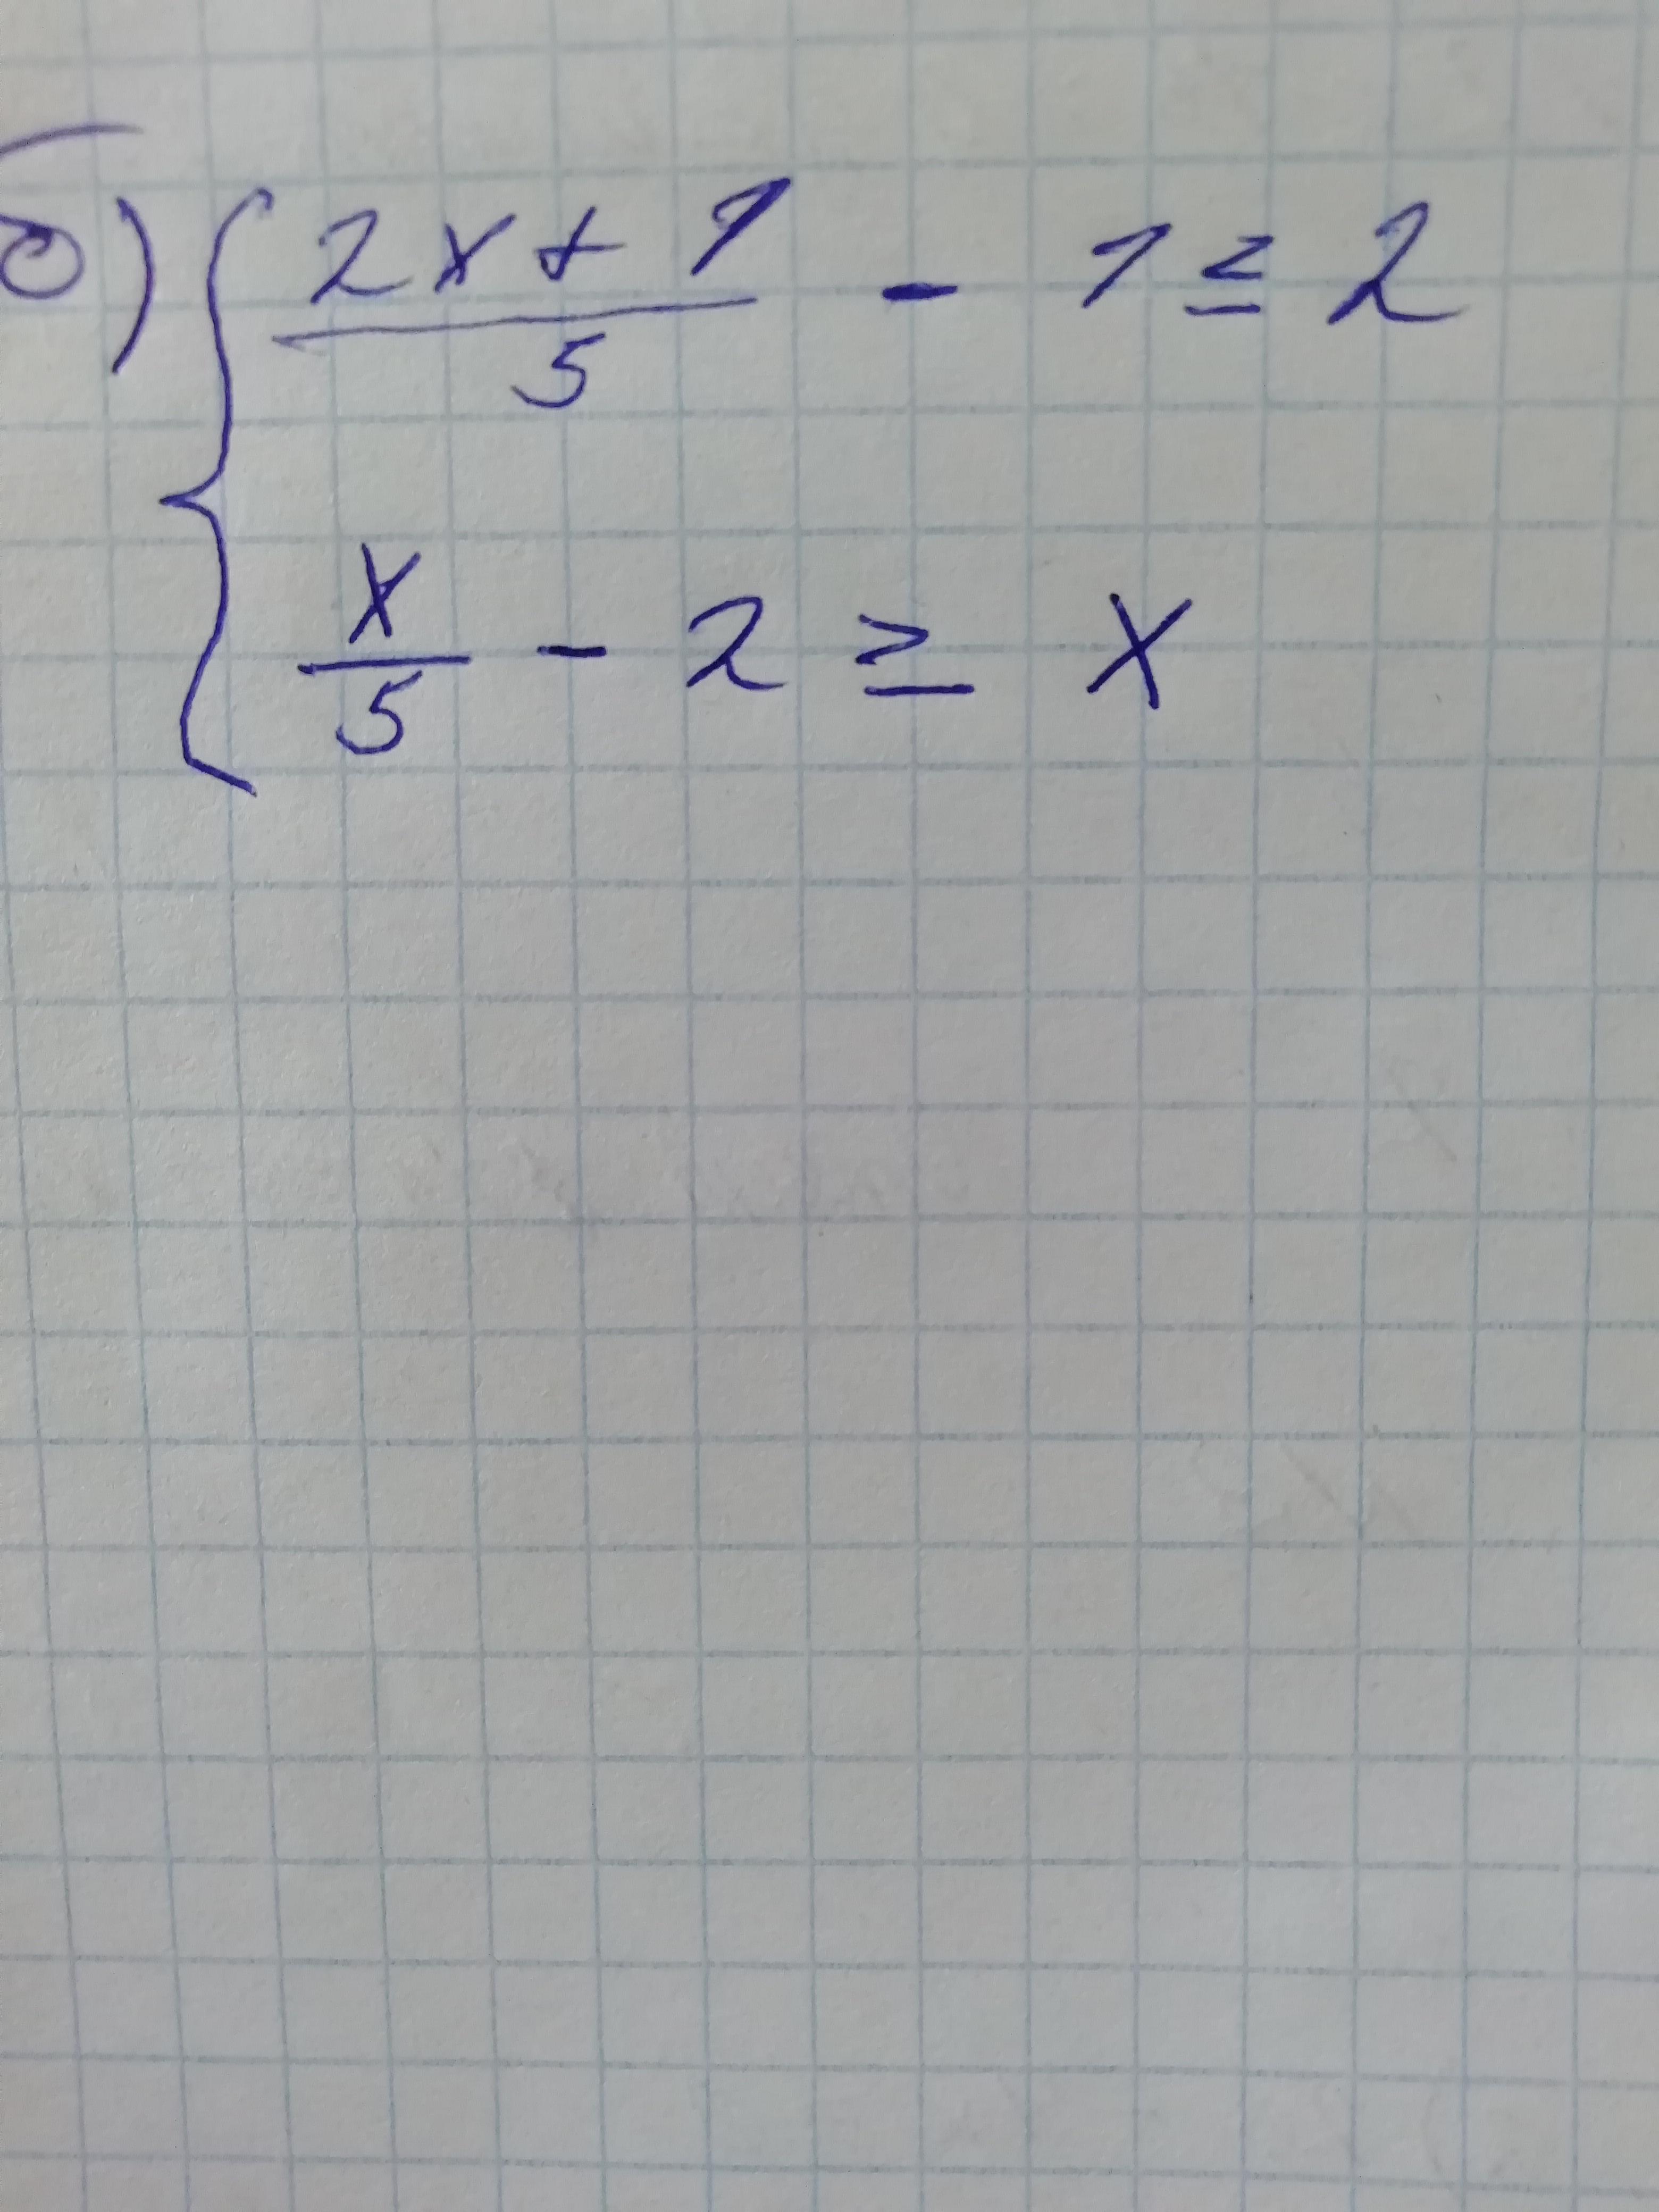 б) { (2x + 1)/5 - 1 ≤ 2
x/5 - 2 ≥ x